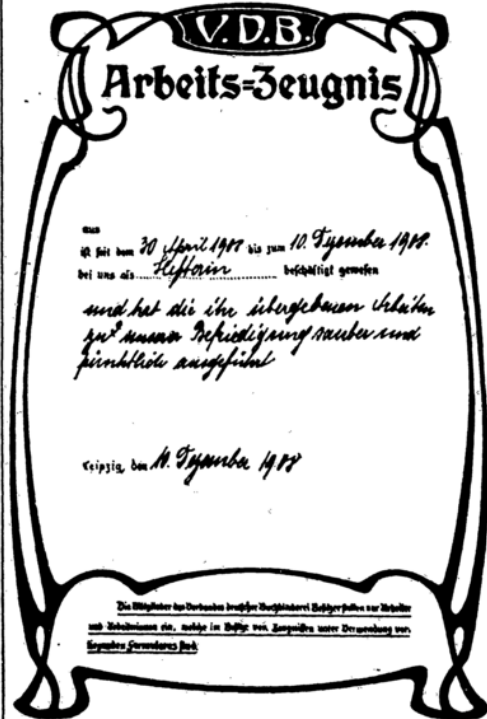 V.D.B.
Arbeits=Zeugnis
aus
ist seit dem 30 April 1908 bis zum 10. Dezember 1908.
bei uns als Hefterin beschäftigt gewesen
und hat die ihr übergebenen Arbeiten
zu unserer Befriedigung sauber und
pünktlich ausgeführt
Leipzig, den 10. Dezember 1908
Die Mitglieder des Verbandes deutscher Buchbinderei Besitzer stellen nur Arbeiter
und Arbeiterinnen ein, welche im Besitze von Zeugnissen unter Verwendung vor-
liegenden Formulares sind.